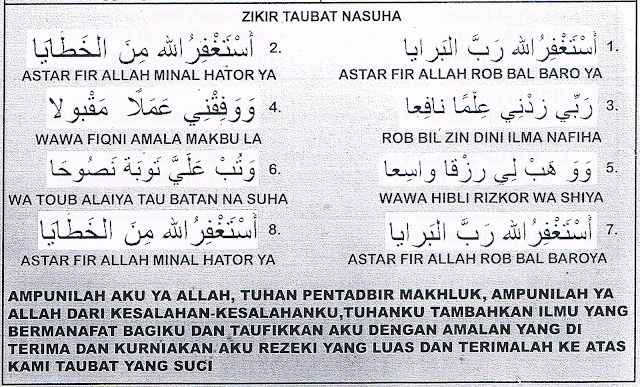 ZIKIR TAUBAT NASUHA
1. أَسْتَغْفِرُ الله رَبَّ البَرايا
ASTAR FIR ALLAH ROB BAL BARO YA
2. أَسْتَغْفِرُ الله مِنَ الخَطَايا
ASTAR FIR ALLAH MINAL HATOR YA
3. رَبِّي زِدْنِي عِلْمًا نافِعا
ROB BIL ZIN DINI ILMA NAFIHA
4. وَوَفِقْنِي عَمَلًا مَقْبُولا
WAWA FIQNI AMALA MAKBU LA
5. وَوَ هَبْ لِي رِزْقا واسِعا
WAWA HIBLI RIZKOR WA SHIYA
6. وَتُبْ عَلَيَّ تَوبَة نَصُوحَا
WA TOUB ALAIYA TAU BATAN NA SUHA
7. أَسْتَغْفِرُ الله رَبَّ البَرايا
ASTAR FIR ALLAH ROB BAL BAROYA
8. أَسْتَغْفِرُ الله مِنَ الخَطَايا
ASTAR FIR ALLAH MINAL HATOR YA
AMPUNILAH AKU YA ALLAH, TUHAN PENTADBIR MAKHLUK, AMPUNILAH YA
ALLAH DARI KESALAHAN-KESALAHANKU,TUHANKU TAMBAHKAN ILMU YANG
BERMANAFAT BAGIKU DAN TAUFIKKAN AKU DENGAN AMALAN YANG DI
TERIMA DAN KURNIAKAN AKU REZEKI YANG LUAS DAN TERIMALAH KE ATAS
KAMI TAUBAT YANG SUCI